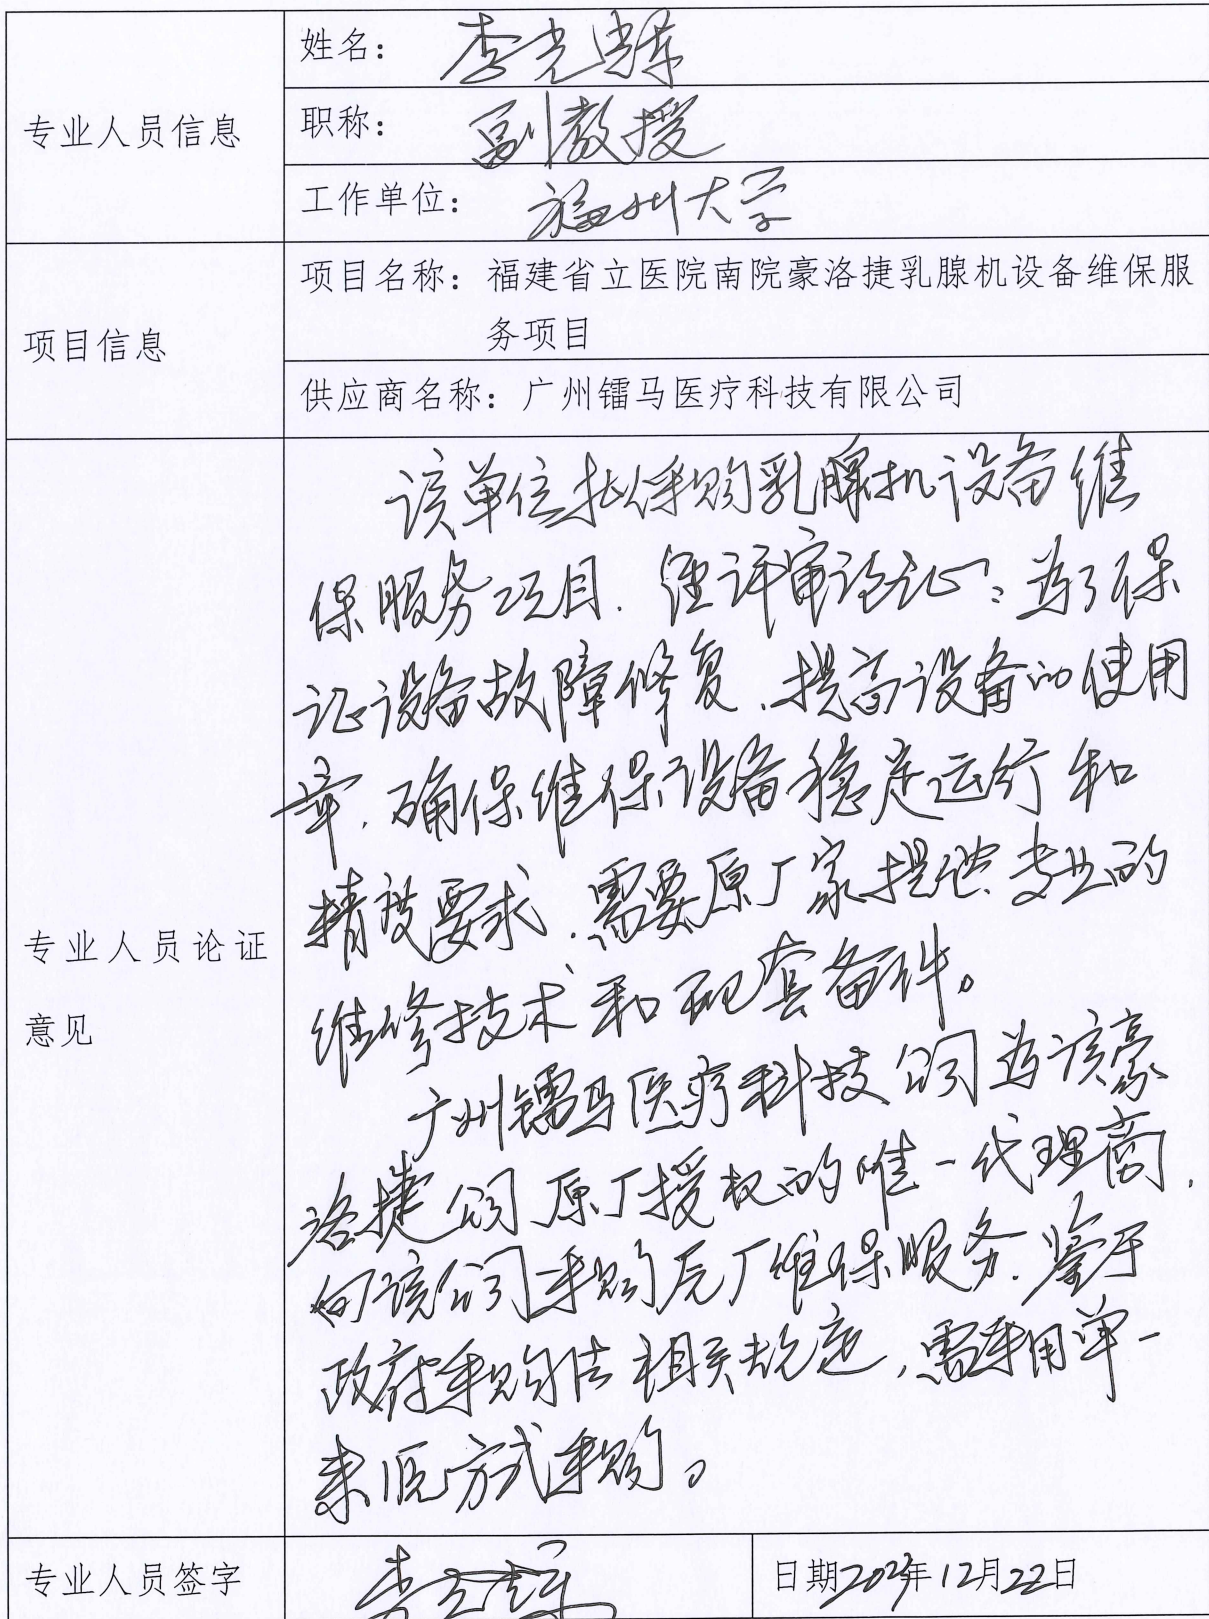 专业人员信息
姓名：李光
职称：副教授
工作单位：福州大学
项目信息
项目名称：福建省立医院南院豪洛捷乳腺机设备维保服
务项目
供应商名称：广州镭马医疗科技有限公司
专业人员论证
意见
该单位拟采购乳腺机设备维
保服务项目，经评审论证：为了保
证设备故障修复，提高设备的使用
率，确保维保设备稳定运行和
精度要求，需要原厂家提供专业的
维修技术和配套备件。
广州镭马医疗科技公司为该豪
洛捷公司原厂授权的唯一代理商，
向该公司采购原厂维保服务，鉴于
政府采购法相关规定，需采用单一
来源方式采购。
专业人员签字
李光
日期202年12月22日